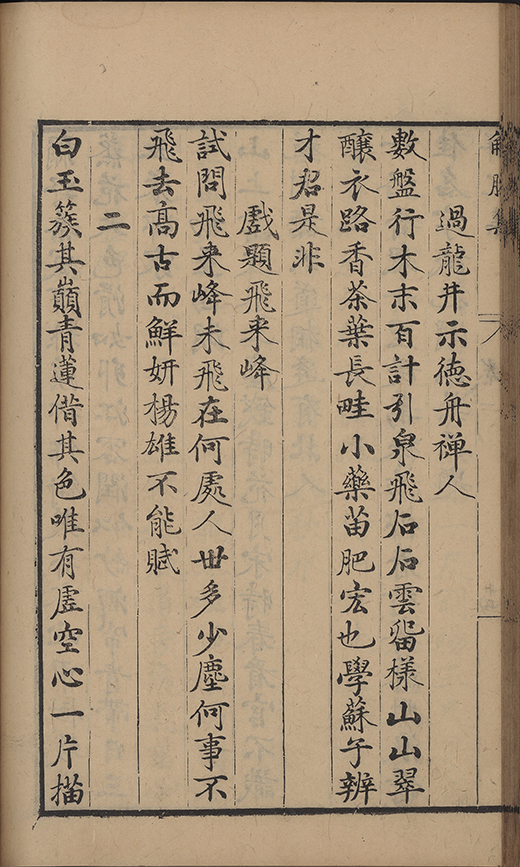 解脫集
過龍井示德舟禪人
數盤行木末百計引泉飛石石雲留樣山山翠
釀衣路香茶葉長畦小藥苗肥宏也學蘇子辨
才君是非
戲題飛来峰
試問飛来峰未飛在何處人丗多少塵何事不
飛去高古而鮮妍楊雄不能賦
二
白玉簇其巔青蓮借其色唯有虛空心一片描